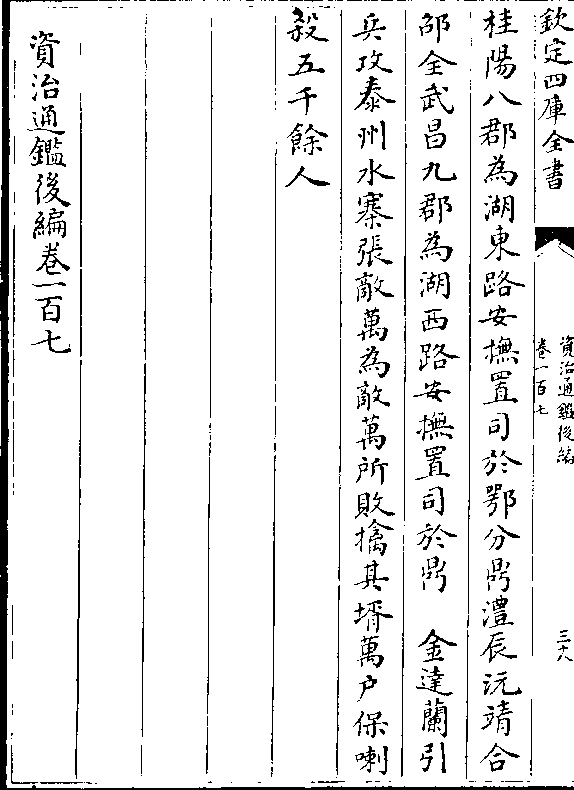 欽定四庫全書
資治通鑑後編
卷一百七
三十八
桂陽八郡為湖東路安撫置司於鄂分鼎澧辰沅靖合
邵全武昌九郡為湖西路安撫置司於鼎　金達蘭引
兵攻泰州水寨張敵萬為敵萬所敗擒其壻萬户保喇
殺五千餘人
資治通鑑後編卷一百七